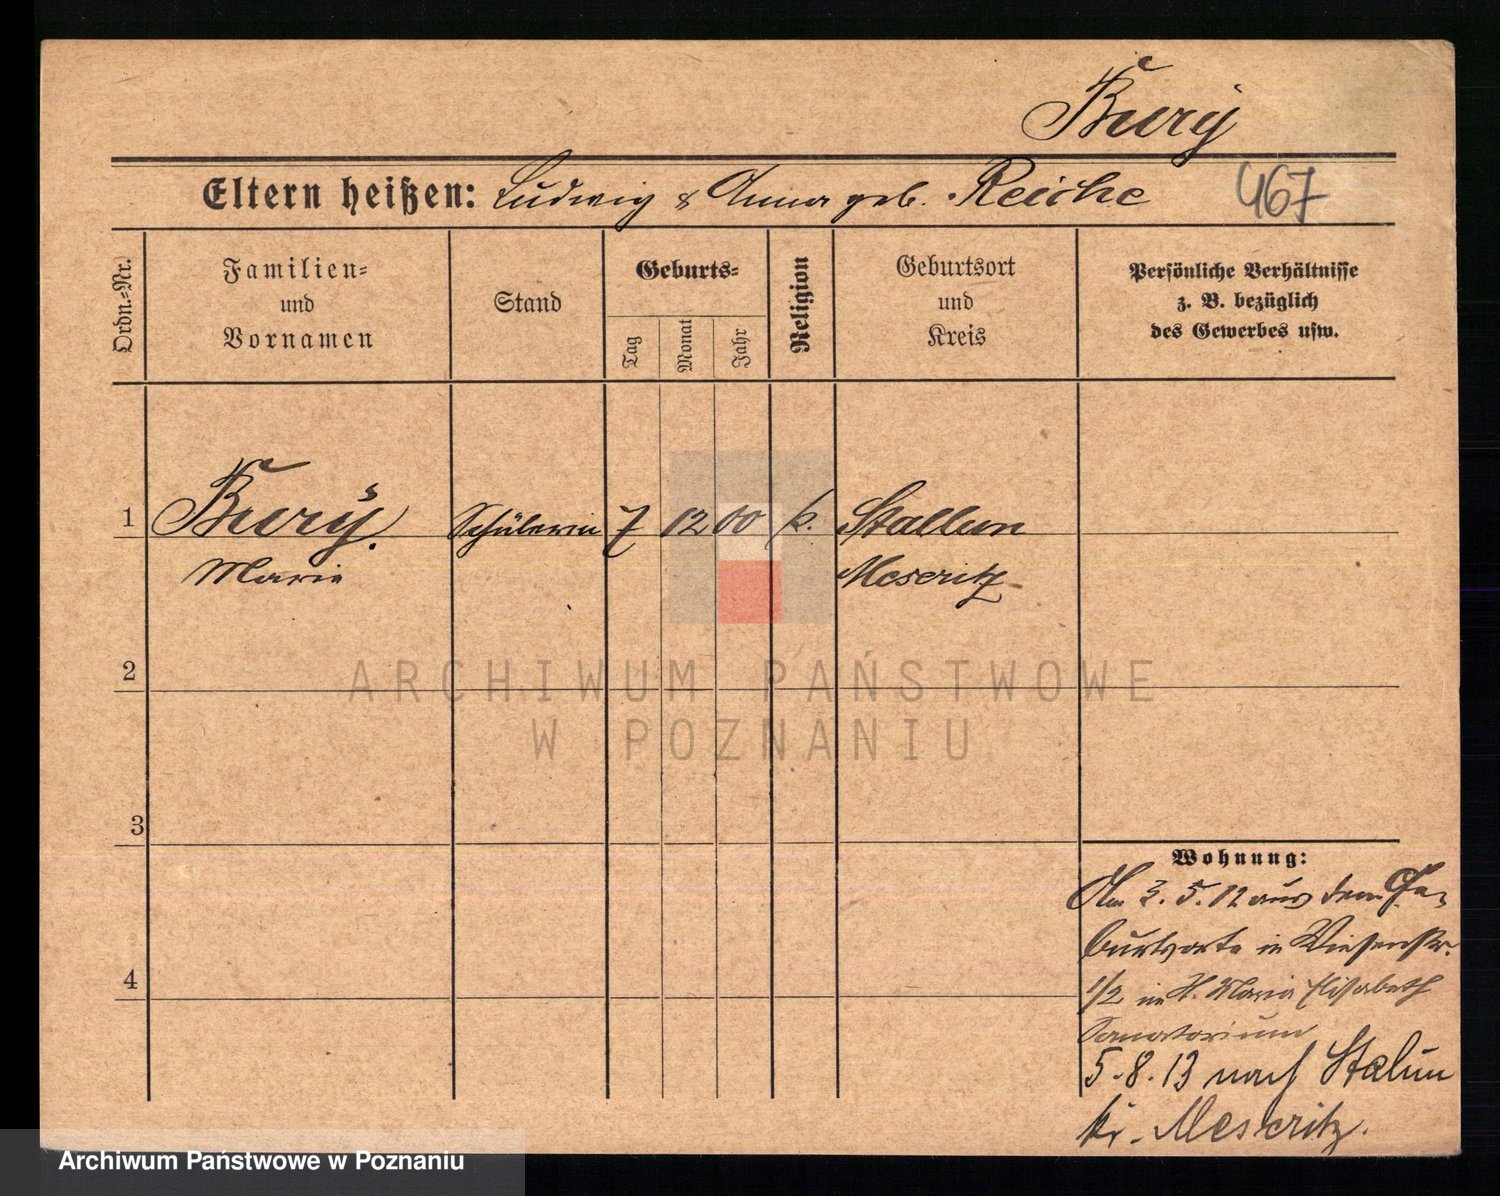 Bury
Eltern heißen: Ludwig & Anna geb. Reiche 467
Ordn.=Nr.
Familien=
und
Vornamen
Stand
Geburts=
Tag
Monat
Jahr
Religion
Geburtsort
und
Kreis
Persönliche Verhältnisse
z. B. bezüglich
des Gewerbes usw.
1 Bury. Schülerin 7 12 00 k. Stallun
Marie Meseritz
2
ARCHIWUM PAŃSTWOWE
W POZNANIU
3
4
Wohnung:
Am 3.5.12 aus dem Ge-
burtsorte in Wiesenstr.
1/2 im St. Maria Elisabeth
Sanatorium
5.8.13 nach Stalun
Kr. Meseritz.
Archiwum Państwowe w Poznaniu